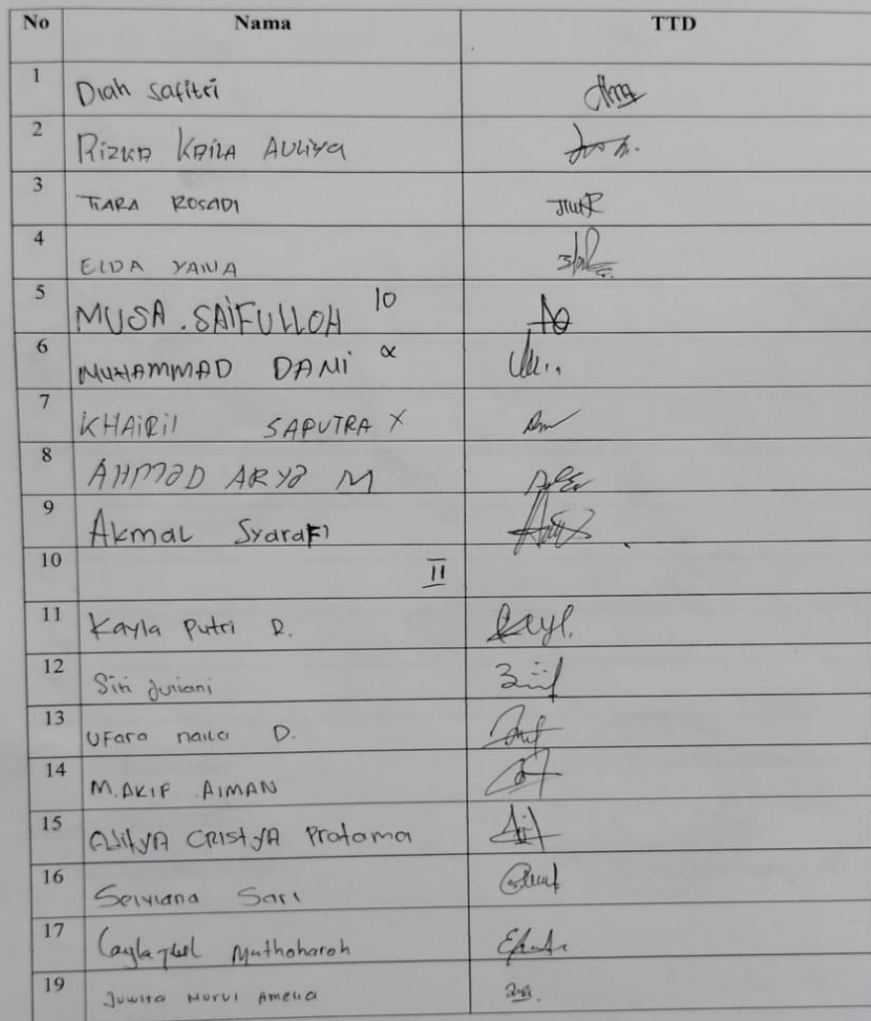 No Nama TTD
1 Diah Safitri
2 Rizka Kaila Auliya
3 TIARA ROSADI
4 ELDA YANA
5 MUSA . SAIFULLOH 10
6 MUHAMMAD DANI
7 KHAIRil SAPUTRA X
8 AHMaD ARYa M
9 Akmal SyaraFi
10 II
11 Kayla Putri R.
12 Siti Juriani
13 UFara naila D.
14 M.AKIF AIMAN
15 ADitYA CRIStYA Pratama
16 Selviana Sari
17 Muthoharoh
19 Juwita Nurul Amelia